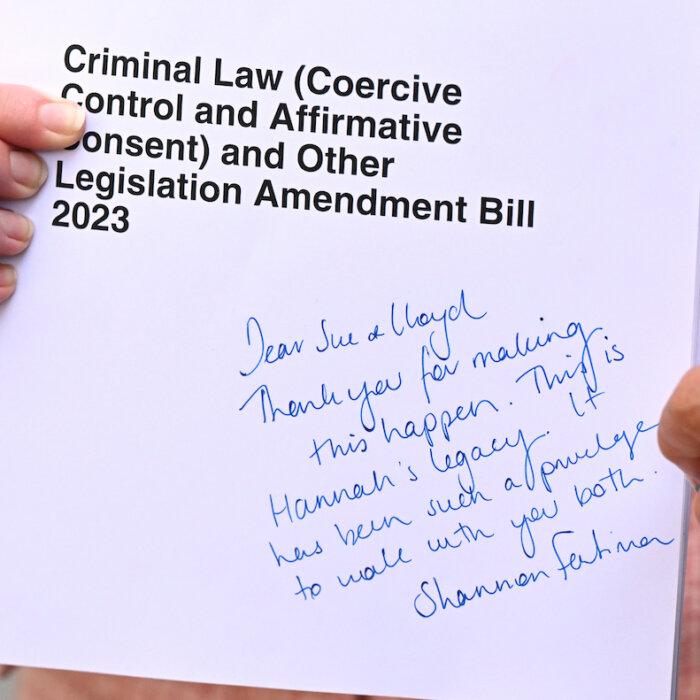 Criminal Law (Coercive
Control and Affirmative
Consent) and Other
Legislation Amendment Bill
2023
Dear Sue & Lloyd
Thank you for making
this happen. This is
Hannah's legacy. It
has been such a privilege
to walk with you both.
Shannon Fentiman